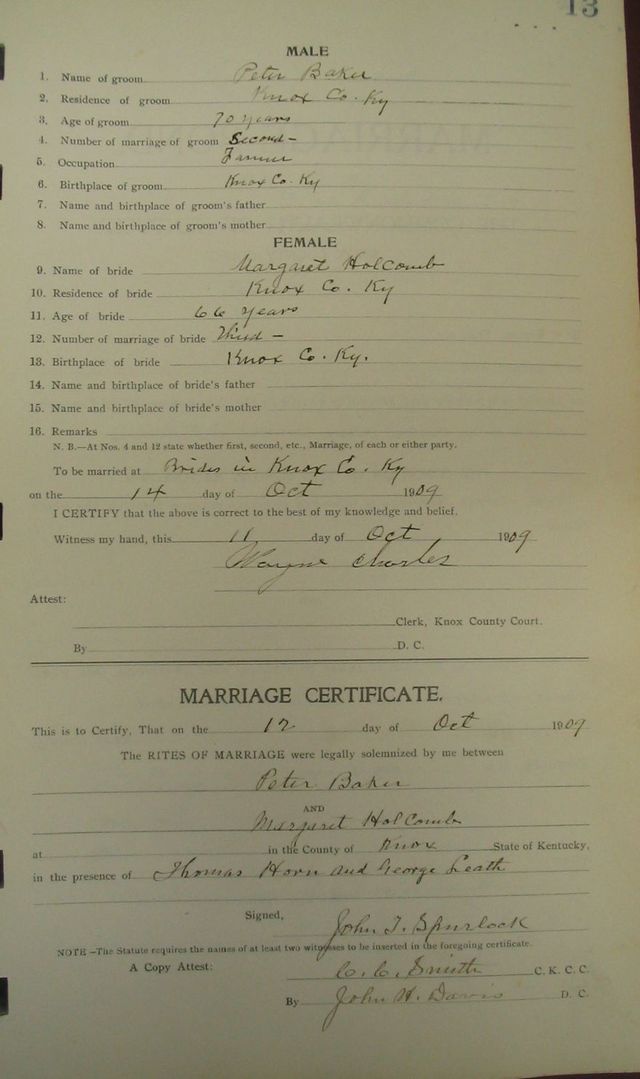 13
MALE
1. Name of groom Peter Baker
2. Residence of groom Knox Co. Ky
3. Age of groom 70 years
4. Number of marriage of groom Second-
5. Occupation Farmer
6. Birthplace of groom Knox Co. Ky
7. Name and birthplace of groom's father
8. Name and birthplace of groom's mother
FEMALE
9. Name of bride Margaret Holcomb
10. Residence of bride Knox Co. Ky
11. Age of bride 66 years
12. Number of marriage of bride Third-
13. Birthplace of bride Knox Co. Ky.
14. Name and birthplace of bride's father
15. Name and birthplace of bride's mother
16. Remarks
N. B.—At Nos. 4 and 12 state whether first, second, etc., Marriage, of each or either party.
To be married at Brides in Knox Co. Ky
on the 14 day of Oct 1909
I CERTIFY that the above is correct to the best of my knowledge and belief.
Witness my hand, this 11 day of Oct 1909
Wayne Charles
Attest:
Clerk, Knox County Court.
By D. C.
MARRIAGE CERTIFICATE.
This is to Certify, That on the 12 day of Oct 1909
The RITES OF MARRIAGE were legally solemnized by me between
Peter Baker
AND
Margaret Holcomb
at in the County of Knox State of Kentucky,
in the presence of Thomas Horn and George Leath
Signed, John T. Spurlock
NOTE—The Statute requires the names of at least two witnesses to be inserted in the foregoing certificate.
A Copy Attest: C. C. Smith C. K. C. C.
By John H. Davis D. C.